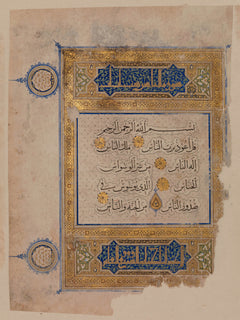 بسم الله الرحمن الرحيم
قل أعوذ برب الناس ملك الناس
إله الناس من شر الوسواس
الخناس الذي يوسوس في
صدور الناس من الجنة والناس